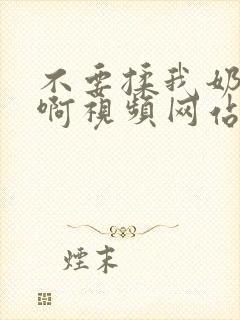 不要揉我奶
啊視頻网佔
煙末